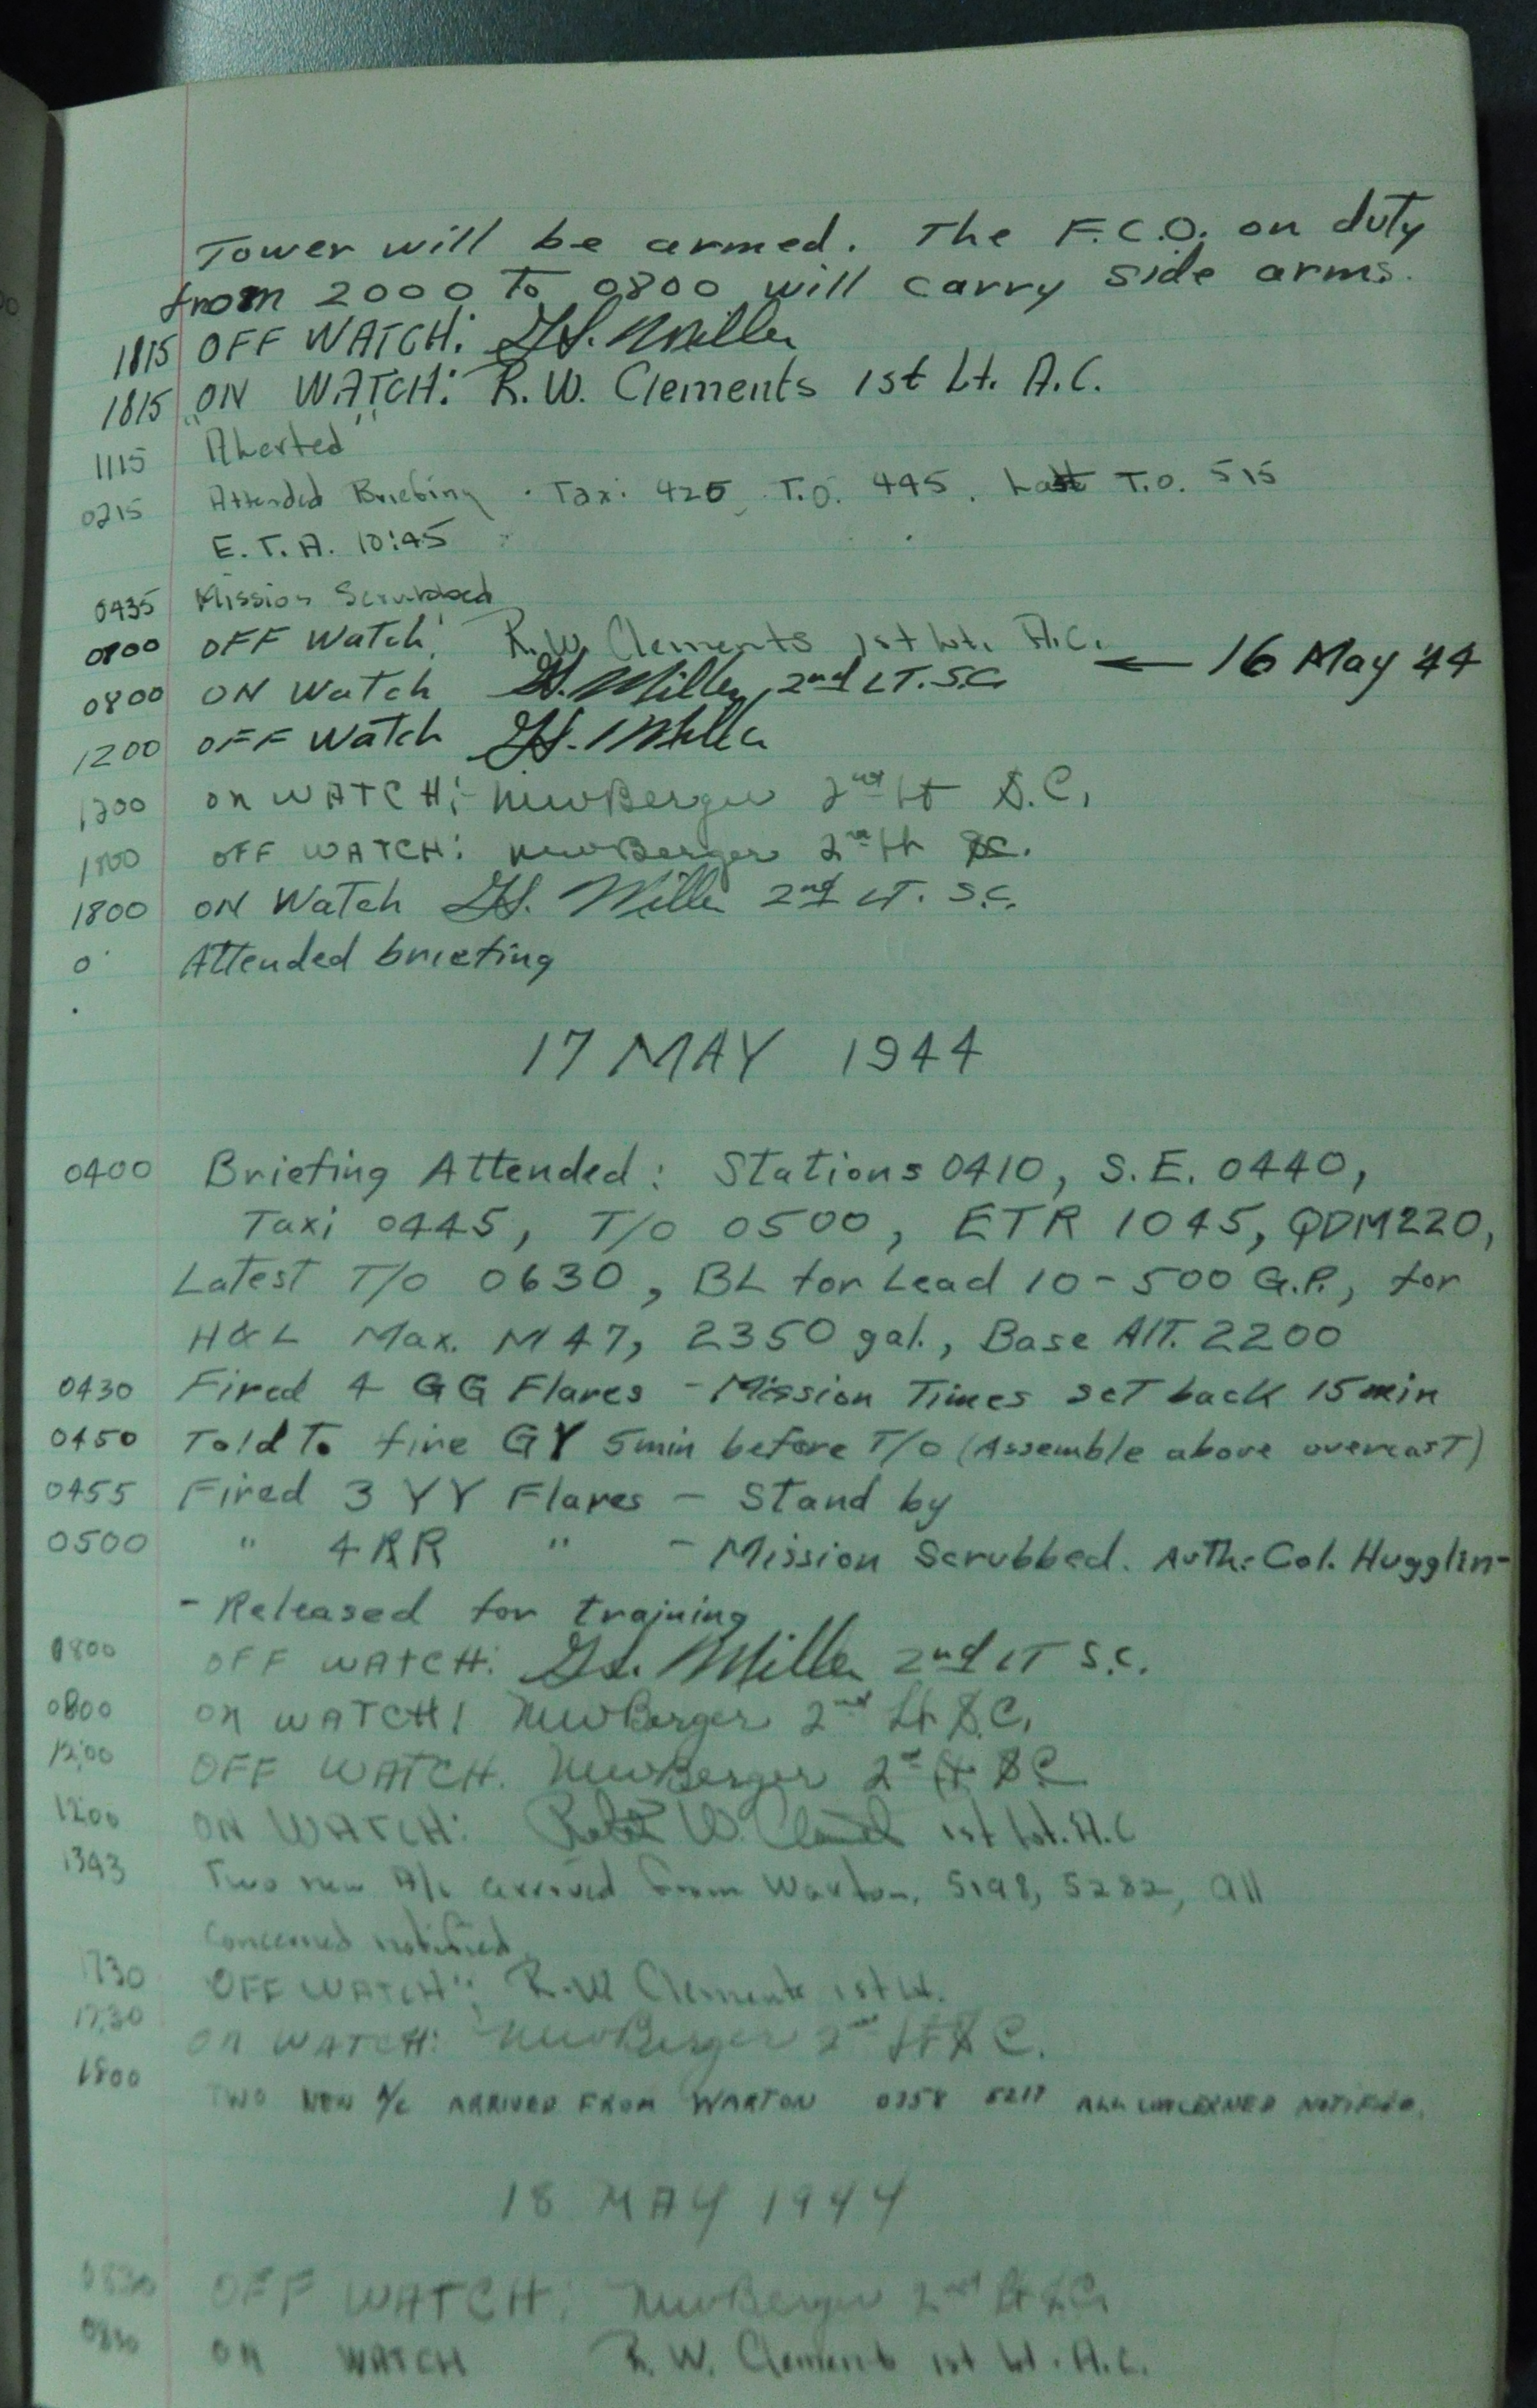 Tower will be armed. The F.C.O. on duty
from 2000 To 0800 will carry side arms.
1815 OFF WATCH: G.S. Miller
1815 ON WATCH: R. W. Clements 1st Lt. A.C.
1115 "Alerted"
0215 Attended Briefing. Taxi 425, T.O. 445. Last T.O. 515
E.T.A. 10:45
0435 Mission Scrubbed
0800 OFF Watch: R.W. Clements 1st Lt. A.C.
← 16 May '44
0800 ON Watch G.S. Miller, 2nd LT. S.C.
1200 OFF Watch G.S. Miller
1200 on WATCH: NewBerger 2nd Lt S.C.
1800 OFF WATCH: NewBerger 2nd Lt SC.
1800 ON Watch G.S. Miller 2nd LT. S.C.
0 Attended briefing
17 MAY 1944
0400 Briefing Attended: Stations 0410, S.E. 0440,
Taxi 0445, T/O 0500, ETR 1045, QDM220,
Latest T/O 0630, BL for Lead 10-500 G.P., for
H&L Max. M47, 2350 gal., Base Alt. 2200
0430 Fired 4 GG Flares - Mission Times set back 15 min
0450 Told To fire GY 5min before T/O (Assemble above overcast)
0455 Fired 3 YY Flares - Stand by
0500 " 4 RR " - Mission Scrubbed. Auth: Col. Hugglin-
- Released for training
0800 OFF WATCH: G.S. Miller 2nd LT S.C.
0800 on WATCH: NewBerger 2nd Lt S.C.
1200 OFF WATCH. NewBerger 2nd Lt SC
1200 ON WATCH: Robert W. Clements 1st Lt. A.C
1343 Two new A/c arrived from Warton, 5198, 5282, all
concerned notified.
1730 OFF WATCH: R.W Clements 1st Lt.
1730 on WATCH: NewBerger 2nd Lt S C.
1800 TWO NEW A/C ARRIVED FROM WARTON 0358 5217 ALL CONCERNED NOTIFIED.
18 MAY 1944
0830 OFF WATCH: NewBerger 2nd Lt S.C.
0830 ON WATCH R. W. Clements 1st Lt. A.C.